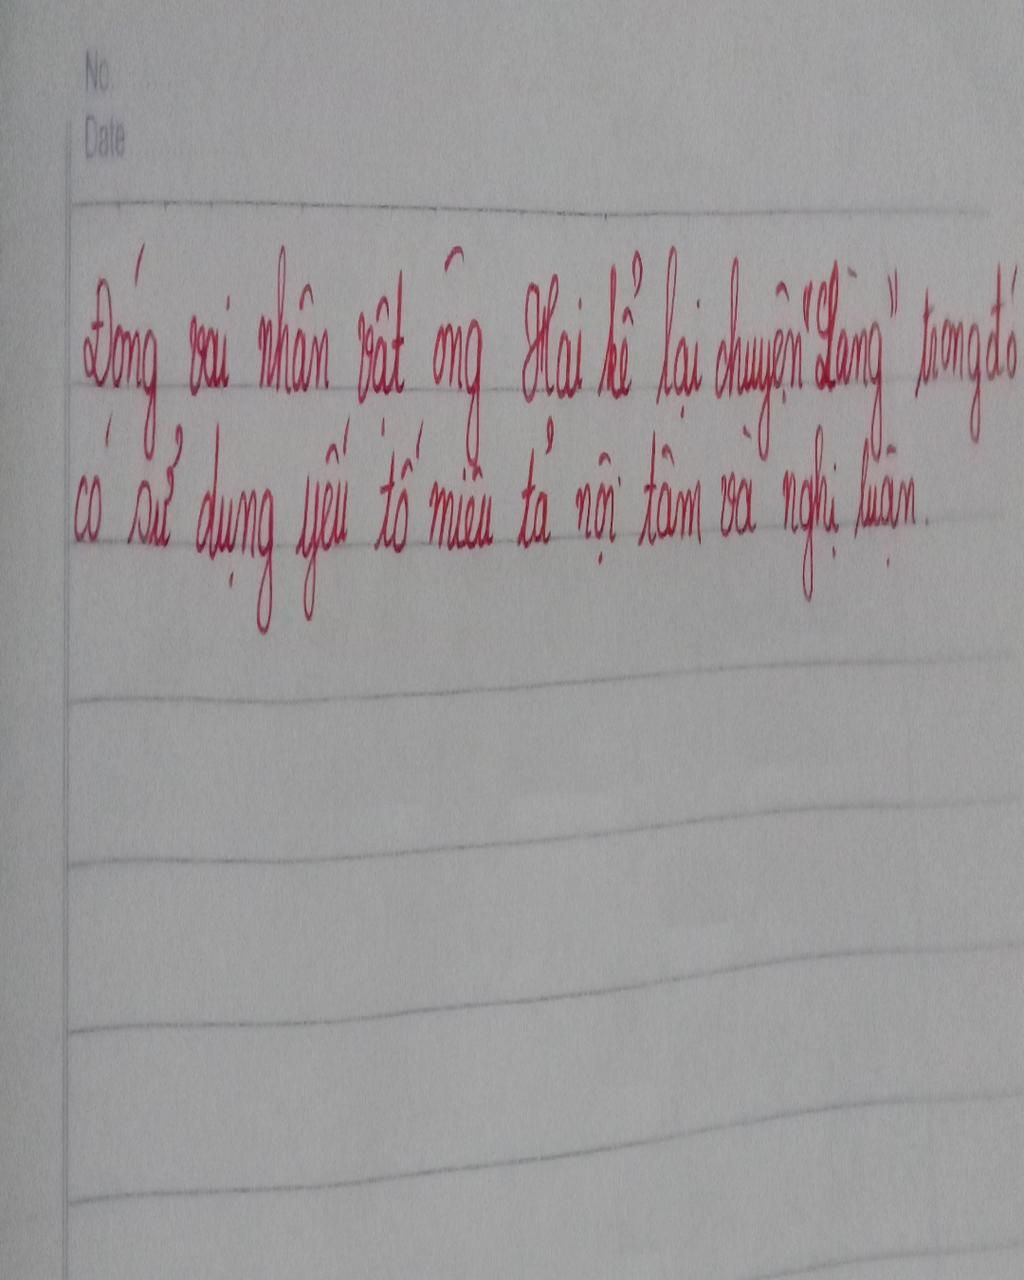 No.
Date
Đóng vai nhân vật ông Hai kể lại chuyện "Làng" trong đó
có sử dụng yếu tố miêu tả nội tâm và nghị luận.